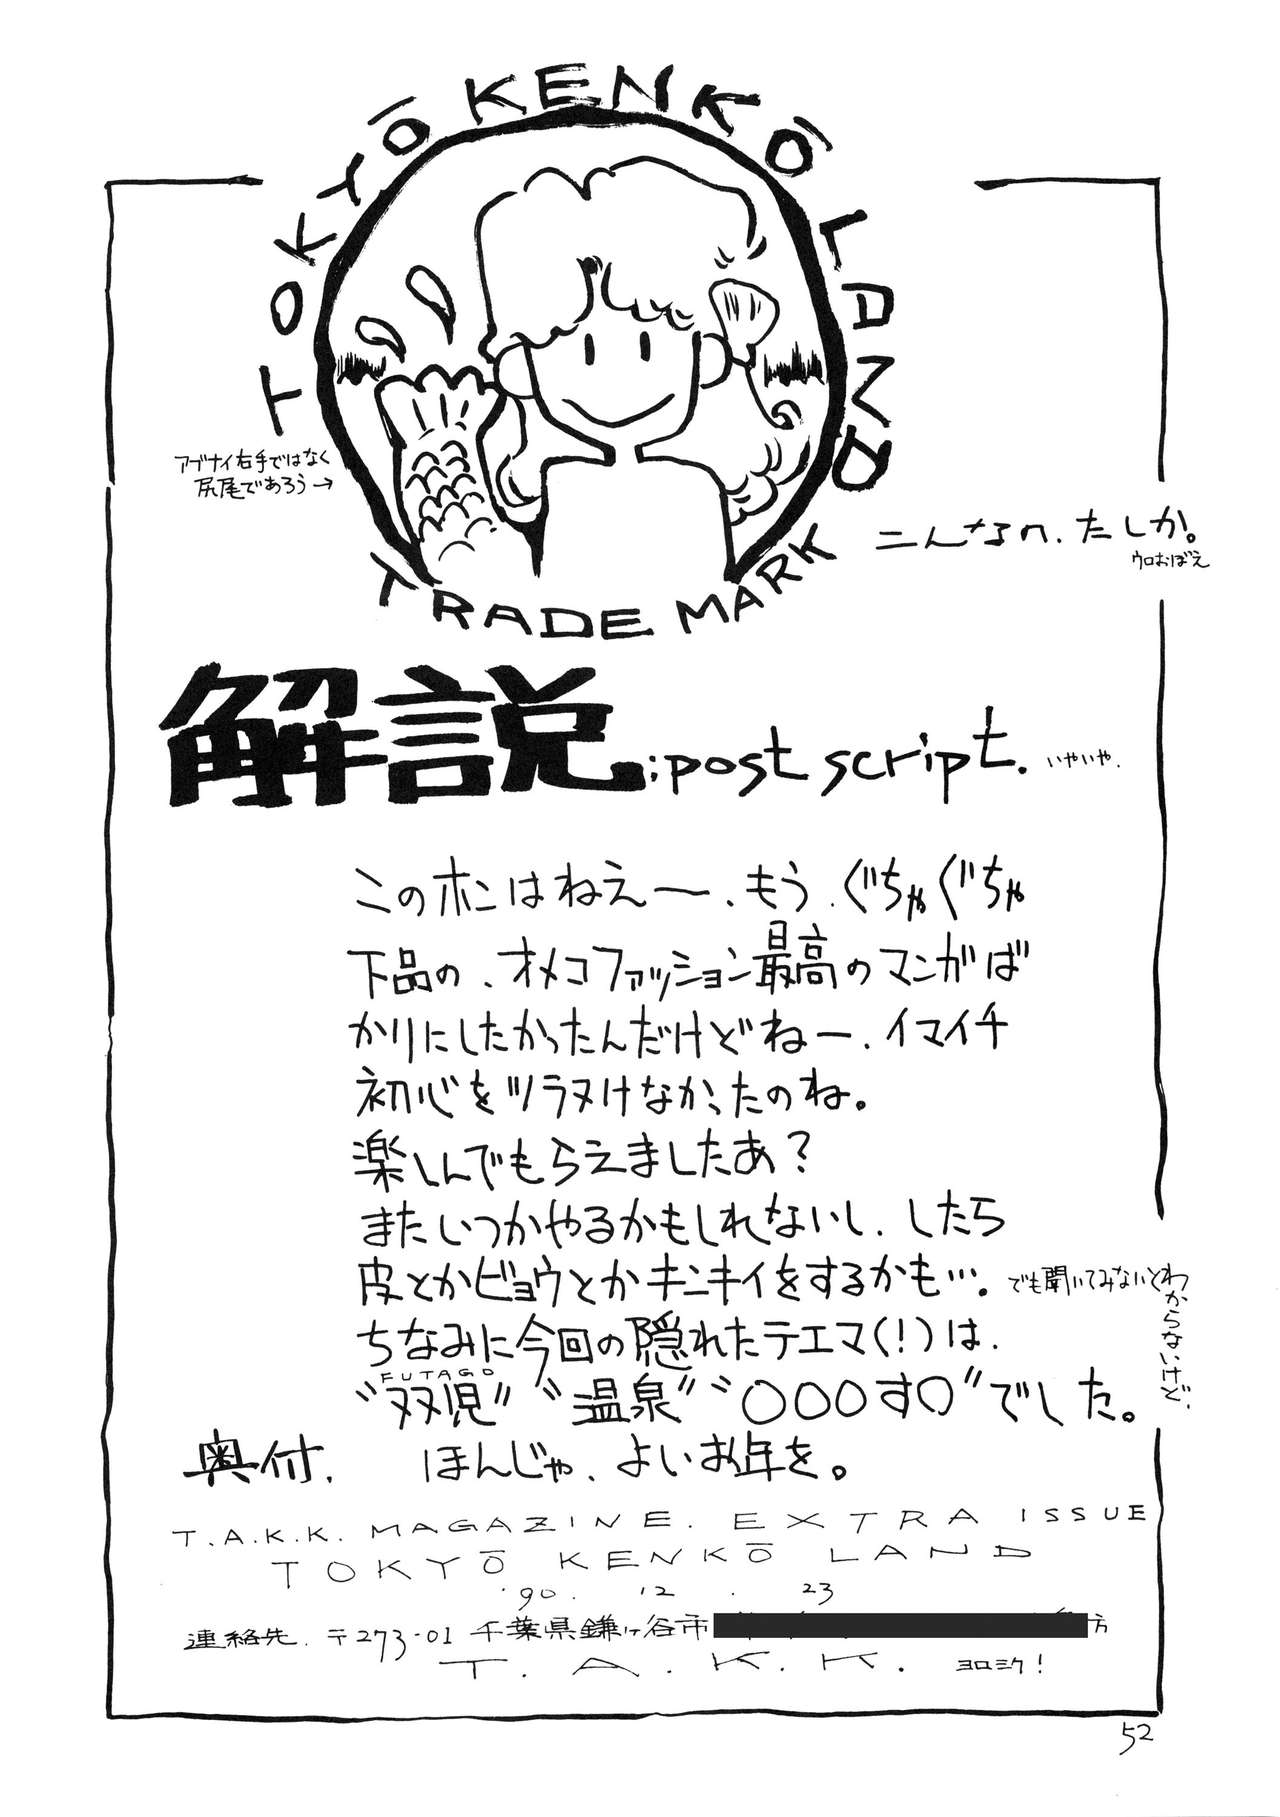 TOKYŌ KENKŌ LAND
TRADE MARK
アブナイ右手ではなく
尻尾であろう→
こんなの、たしか。
ウロおぼえ
解説;post script.
いやいや.
このホンはねえ〜、もう、ぐちゃぐちゃ
下品の、オメコファッション最高のマンガば
かりにしたかったんだけどねー、イマイチ
初心をツラヌけなかったのね。
楽しんでもらえましたあ?
またいつかやるかもしれないし、したら
皮とかビョウとかキンキイをするかも…。
でも聞いてみないとわからないけど、
ちなみに今回の隠れたテエマ(!)は、
FUTAGO
“双児”“温泉”“〇〇〇す〇”でした。
奥付. ほんじゃ、よいお年を。
T.A.K.K. MAGAZINE. EXTRA ISSUE
TOKYŌ KENKŌ LAND
'90. 12. 23
連絡先. 〒273-01 千葉県鎌ヶ谷市 方
T.A.K.K. ヨロシク!
52